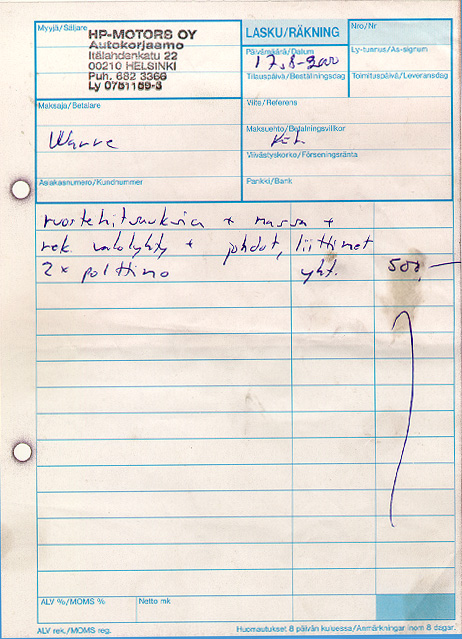 Myyjä/Säljare
HP-MOTORS OY
Autokorjaamo
Itälahdenkatu 22
00210 HELSINKI
Puh. 682 3366
Ly 0751159-3
LASKU/RÄKNING
Nro/Nr
Päivämäärä/Datum
17.8-200
Ly-tunnus/As-signum
Tilauspäivä/Beställningsdag
Toimituspäivä/Leveransdag
Maksaja/Betalare
Warre
Viite/Referens
Maksuehto/Betalningsvillkor
Viivästyskorko/Förseningsränta
Asiakasnumero/Kundnummer
Pankki/Bank
ruostehitsauksia + massa +
rek. valolyhty + johdot, liittimet
2 x polttimo yht. 500,-
ALV %/MOMS %
Netto mk
ALV rek./MOMS reg.
Huomautukset 8 päivän kuluessa/Anmärkningar inom 8 dagar.